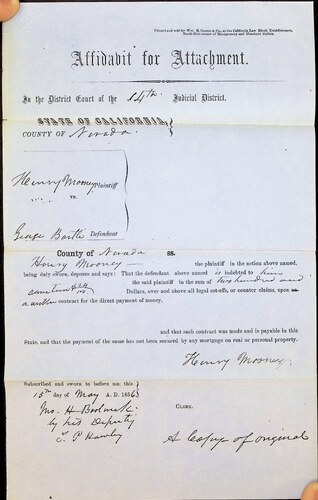 Printed and sold by Wm. B. Cooke & Co., at the California Law Blank Establishment,
North-East corner of Montgomery and Merchant Streets.
Affidavit for Attachment.
In the District Court of the 14th. Judicial District.
STATE OF CALIFORNIA,
COUNTY OF Nevada.
Henry Mooney Plaintiff
vs.
George Defendant
County of Nevada SS.
Henry Mooney the plaintiff in the action above named,
being duly sworn, deposes and says: That the defendant above named is indebted to him
the said plaintiff in the sum of two hundred and
Dollars, over and above all legal set-offs, or counter claims, upon
a written contract for the direct payment of money.
and that such contract was made and is payable in this
State, and that the payment of the same has not been secured by any mortgage on real or personal property.
Henry Mooney.
Subscribed and sworn to before me, this
15th day of May A. D. 1856
Jno. H. CLERK.
by his Deputy
T. P. Hawley
A Copy of original